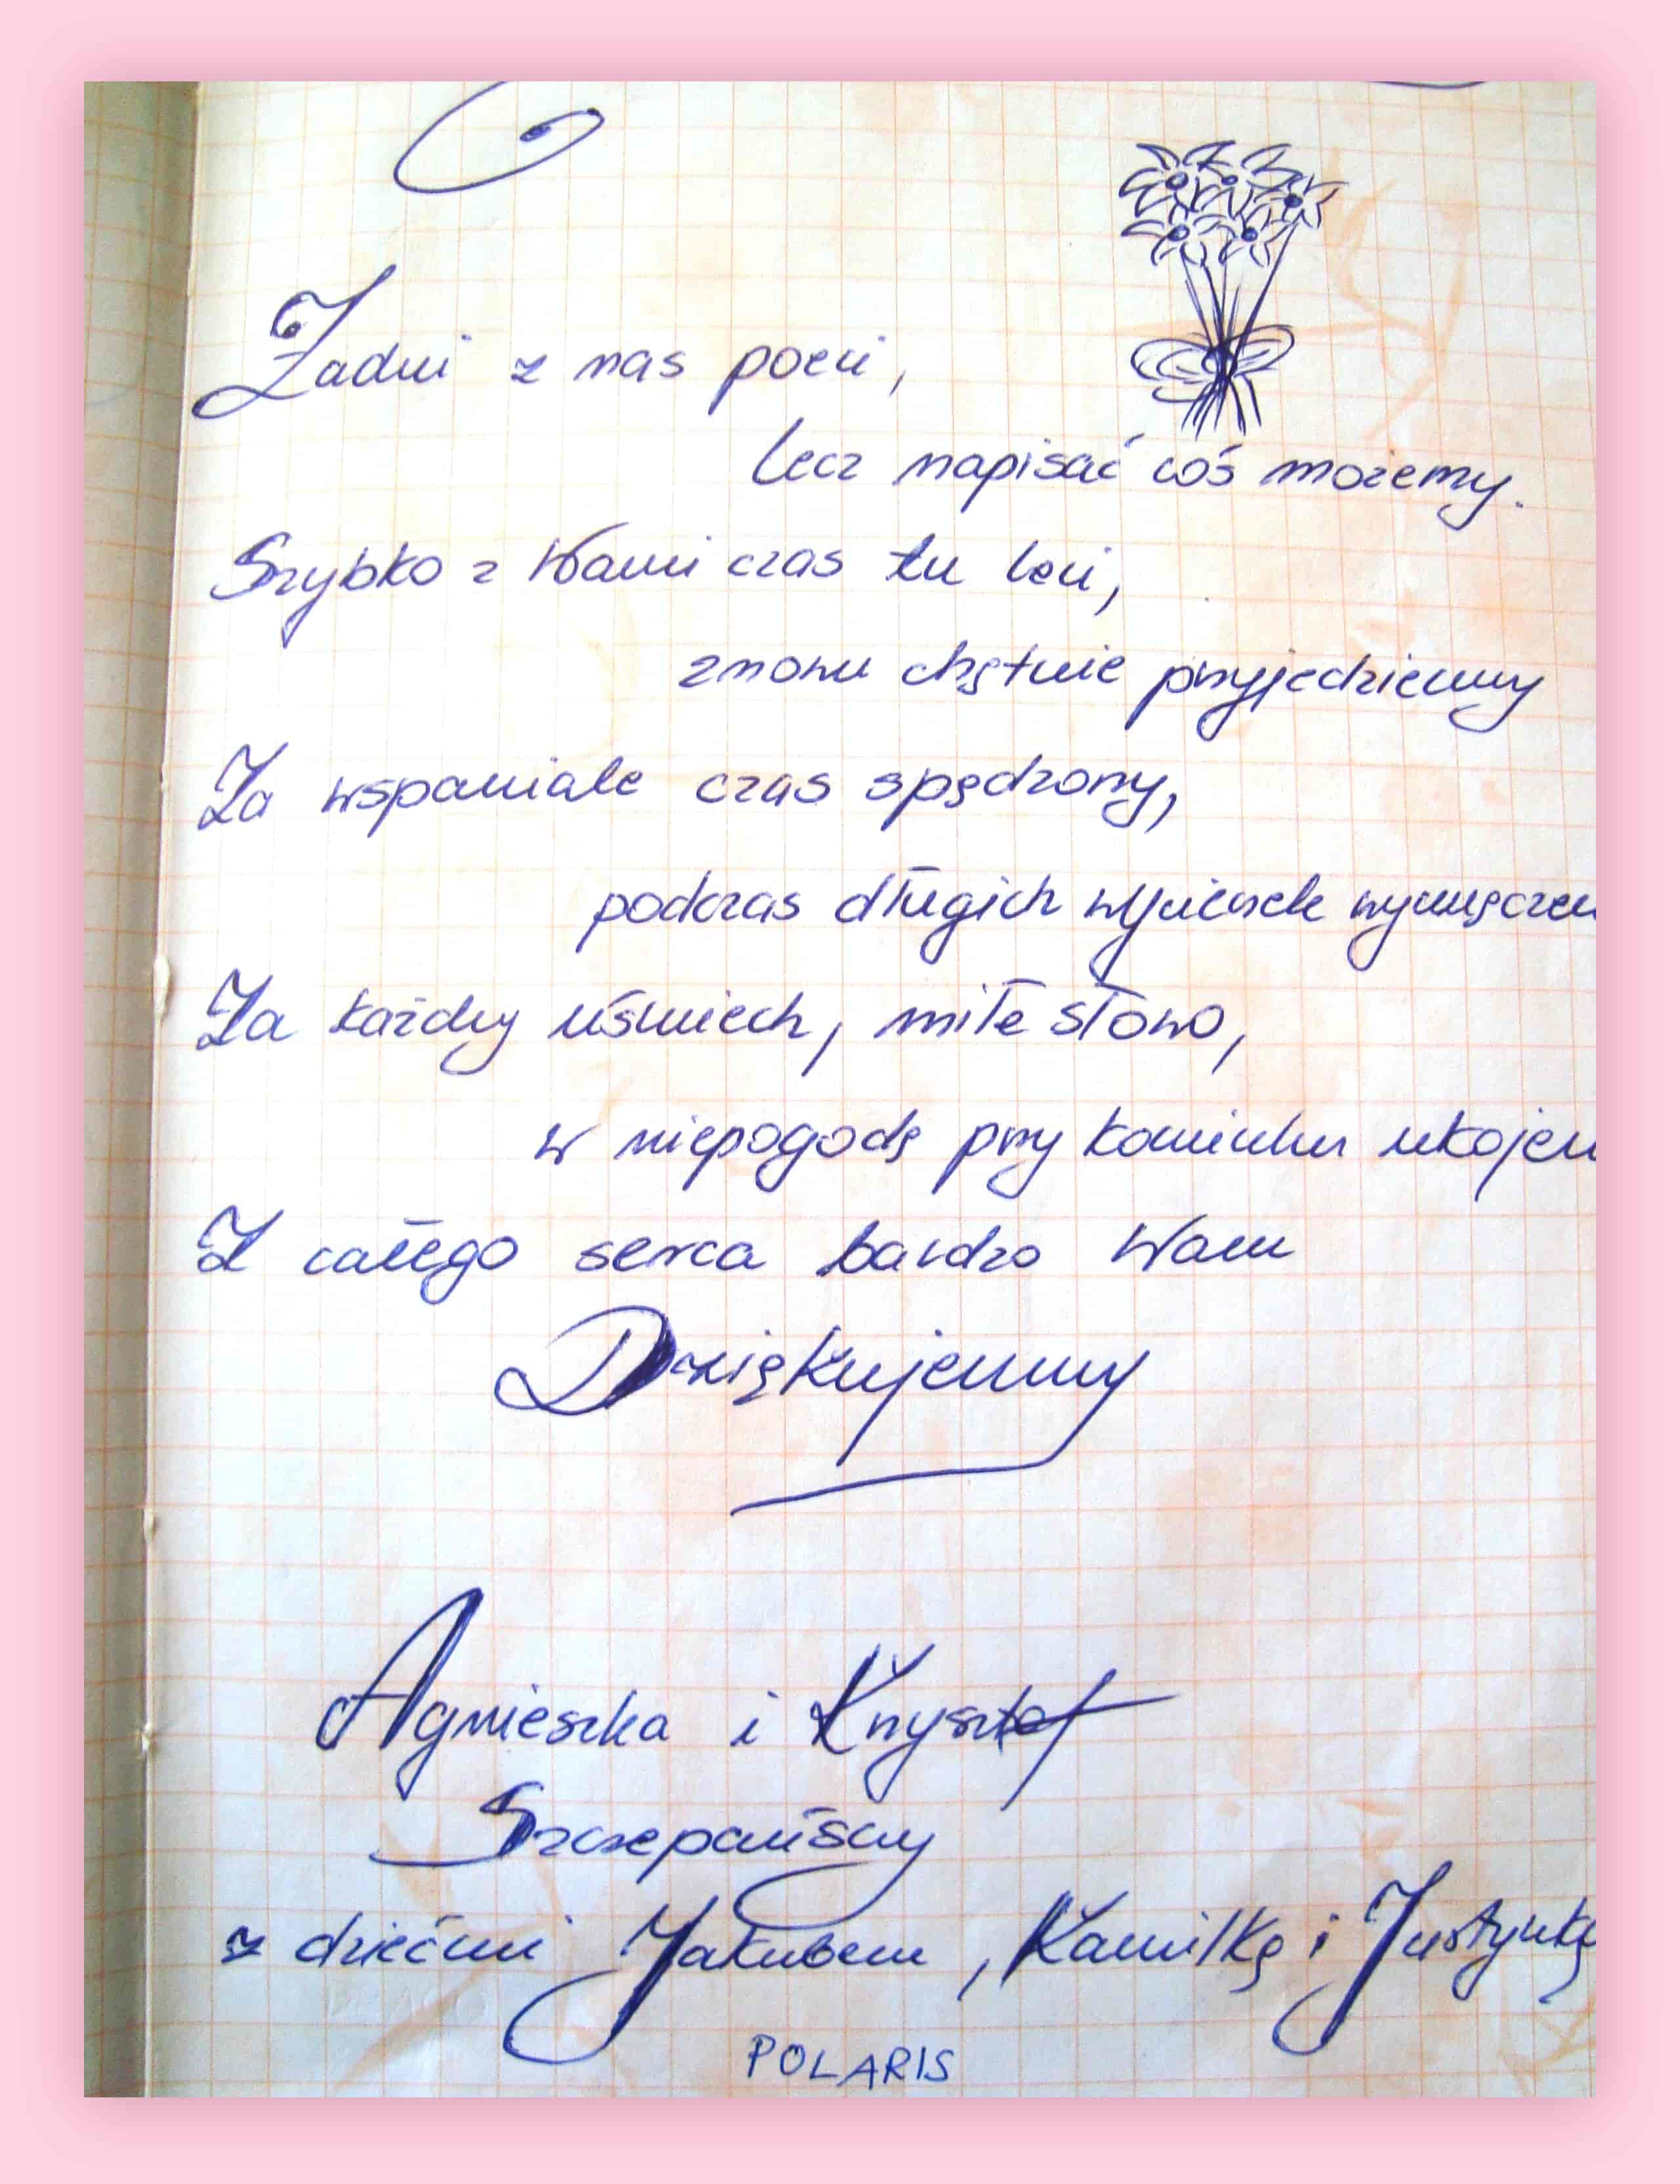 Żadni z nas poeci,
lecz napisać coś możemy.
Szybko z Wami czas tu leci,
znowu chętnie przyjedziemy
Za wspaniale czas spędzony,
podczas długich wycieczek
Za każdy uśmiech, miłe słowo,
w niepogodę przy kominku
Z całego serca bardzo Wam
Dziękujemy
Agnieszka i Krzysztof
Szczepańscy
z dziećmi Jakubem, Kamilką i Justynką
POLARIS